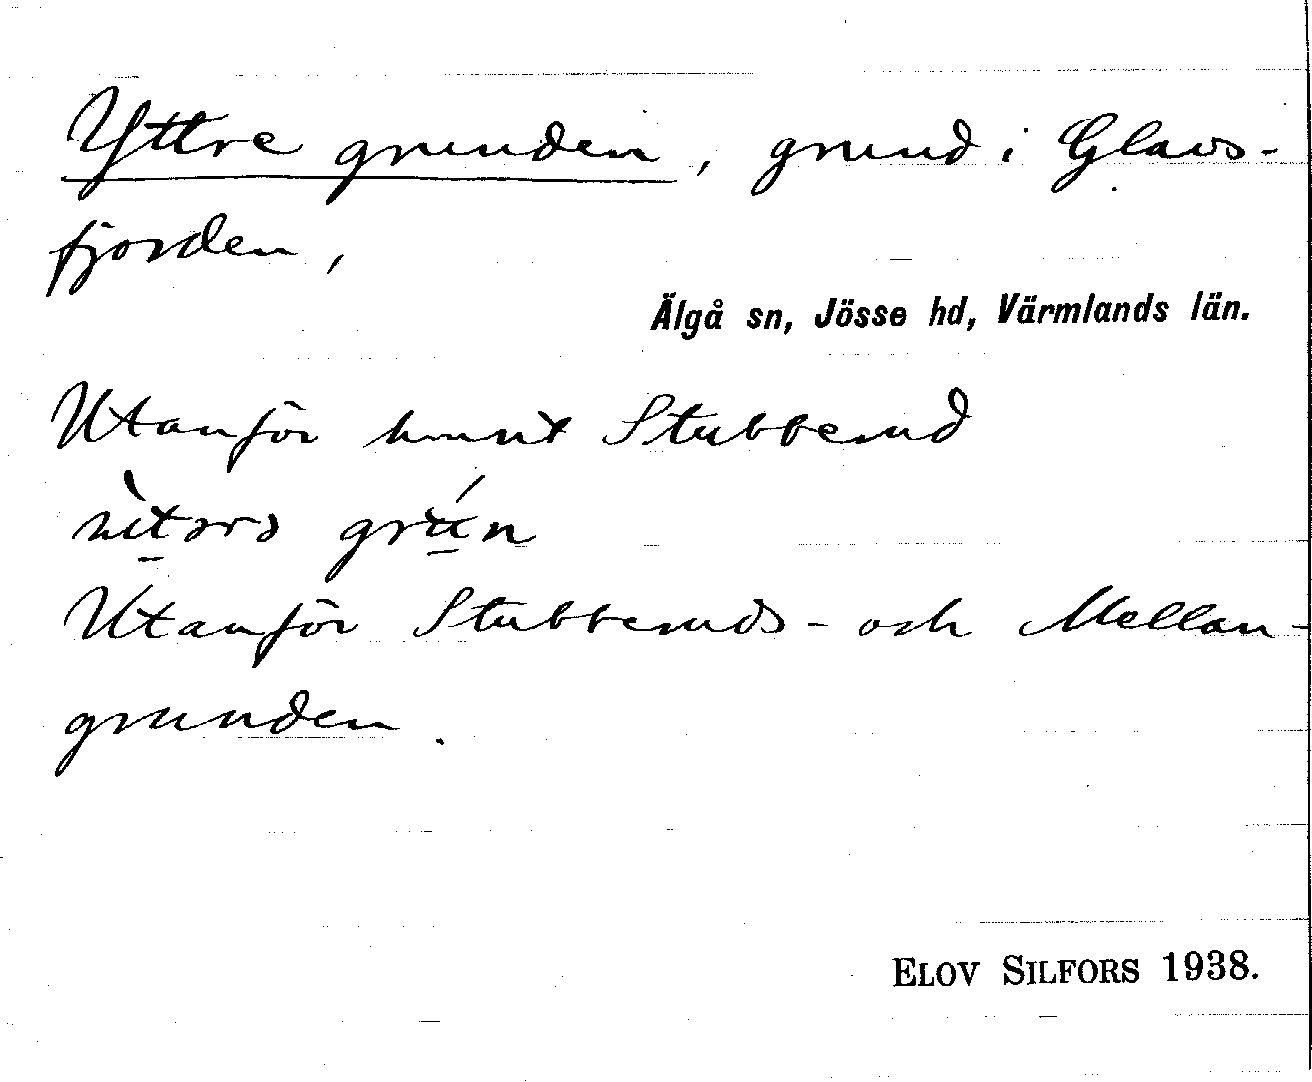 Yttre grunden, grund i Glavs-
fjorden,
Älgå sn, Jösse hd, Värmlands län.
Utanför Stubberud
Utanför Stubberuds- och Mellan-
grunden.
ELOV SILFORS 1938.